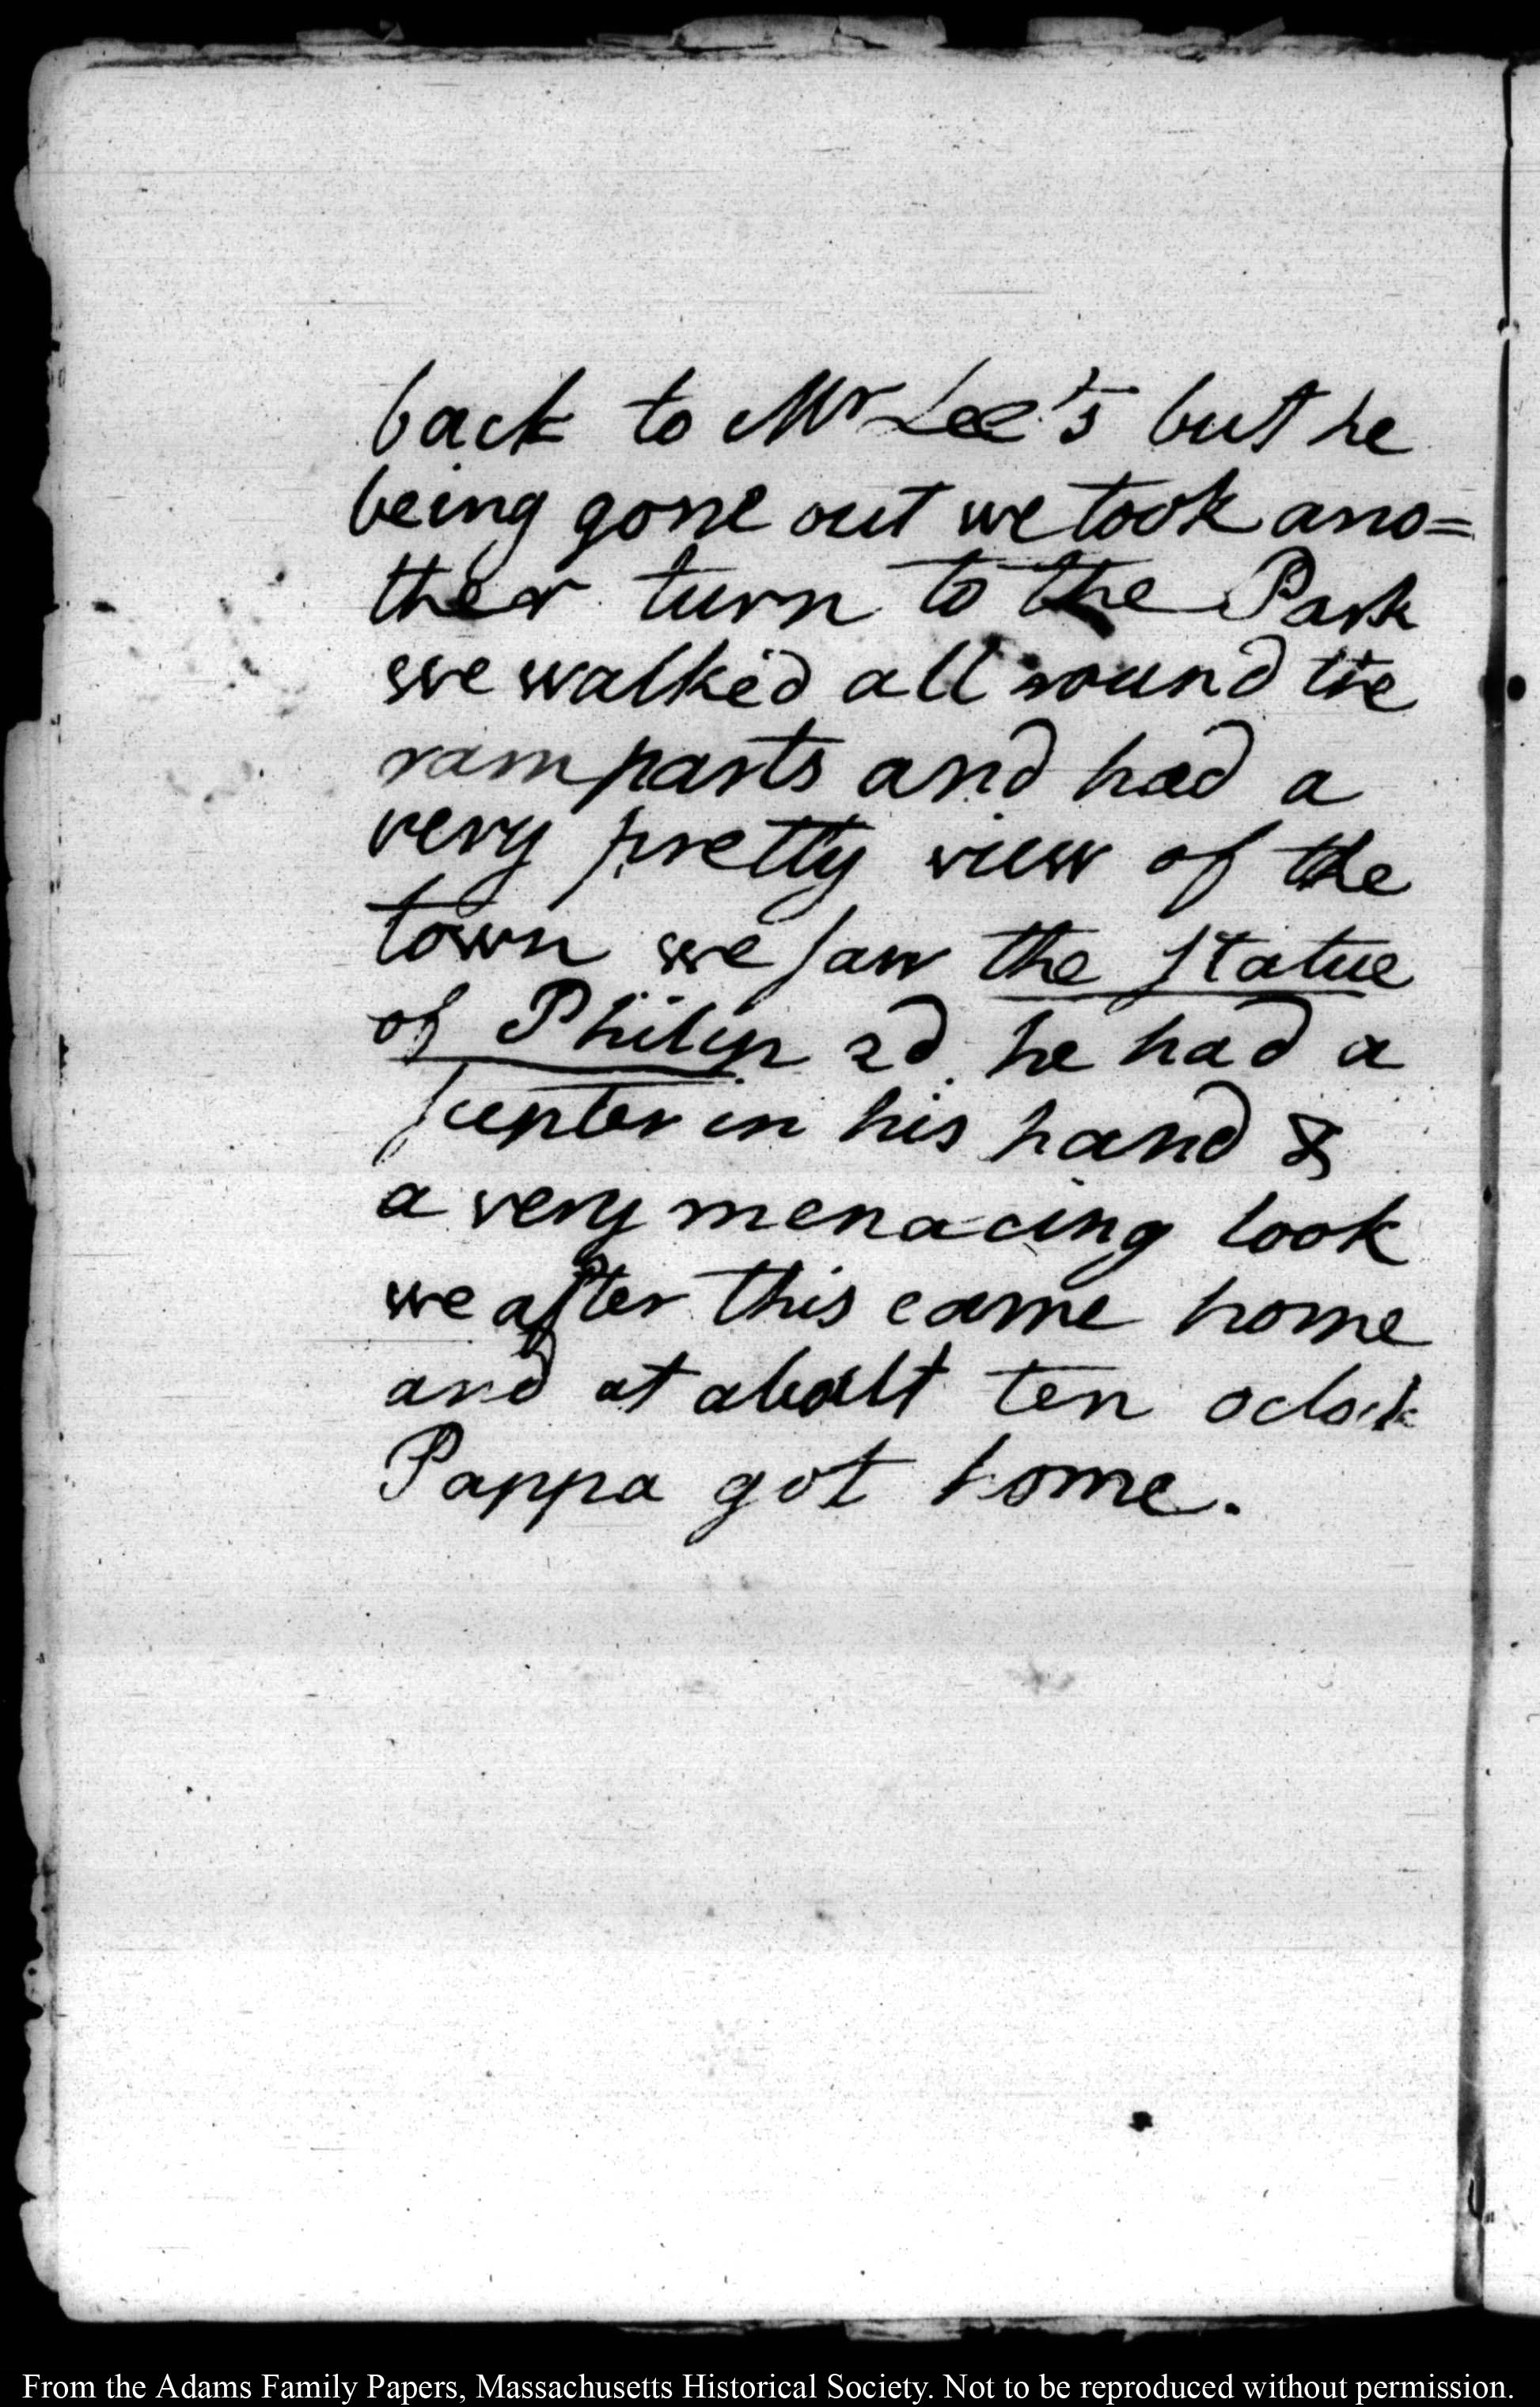 back to Mr Lee's but he
being gone out we took ano=
ther turn to the Park
we walked all round the
ramparts and had a
very pretty view of the
town we saw the statue
of Philip 2d. he had a
scepter in his hand &
a very menacing look
we after this came home
and at about ten oclock
Pappa got home.
From the Adams Family Papers, Massachusetts Historical Society. Not to be reproduced without permission.